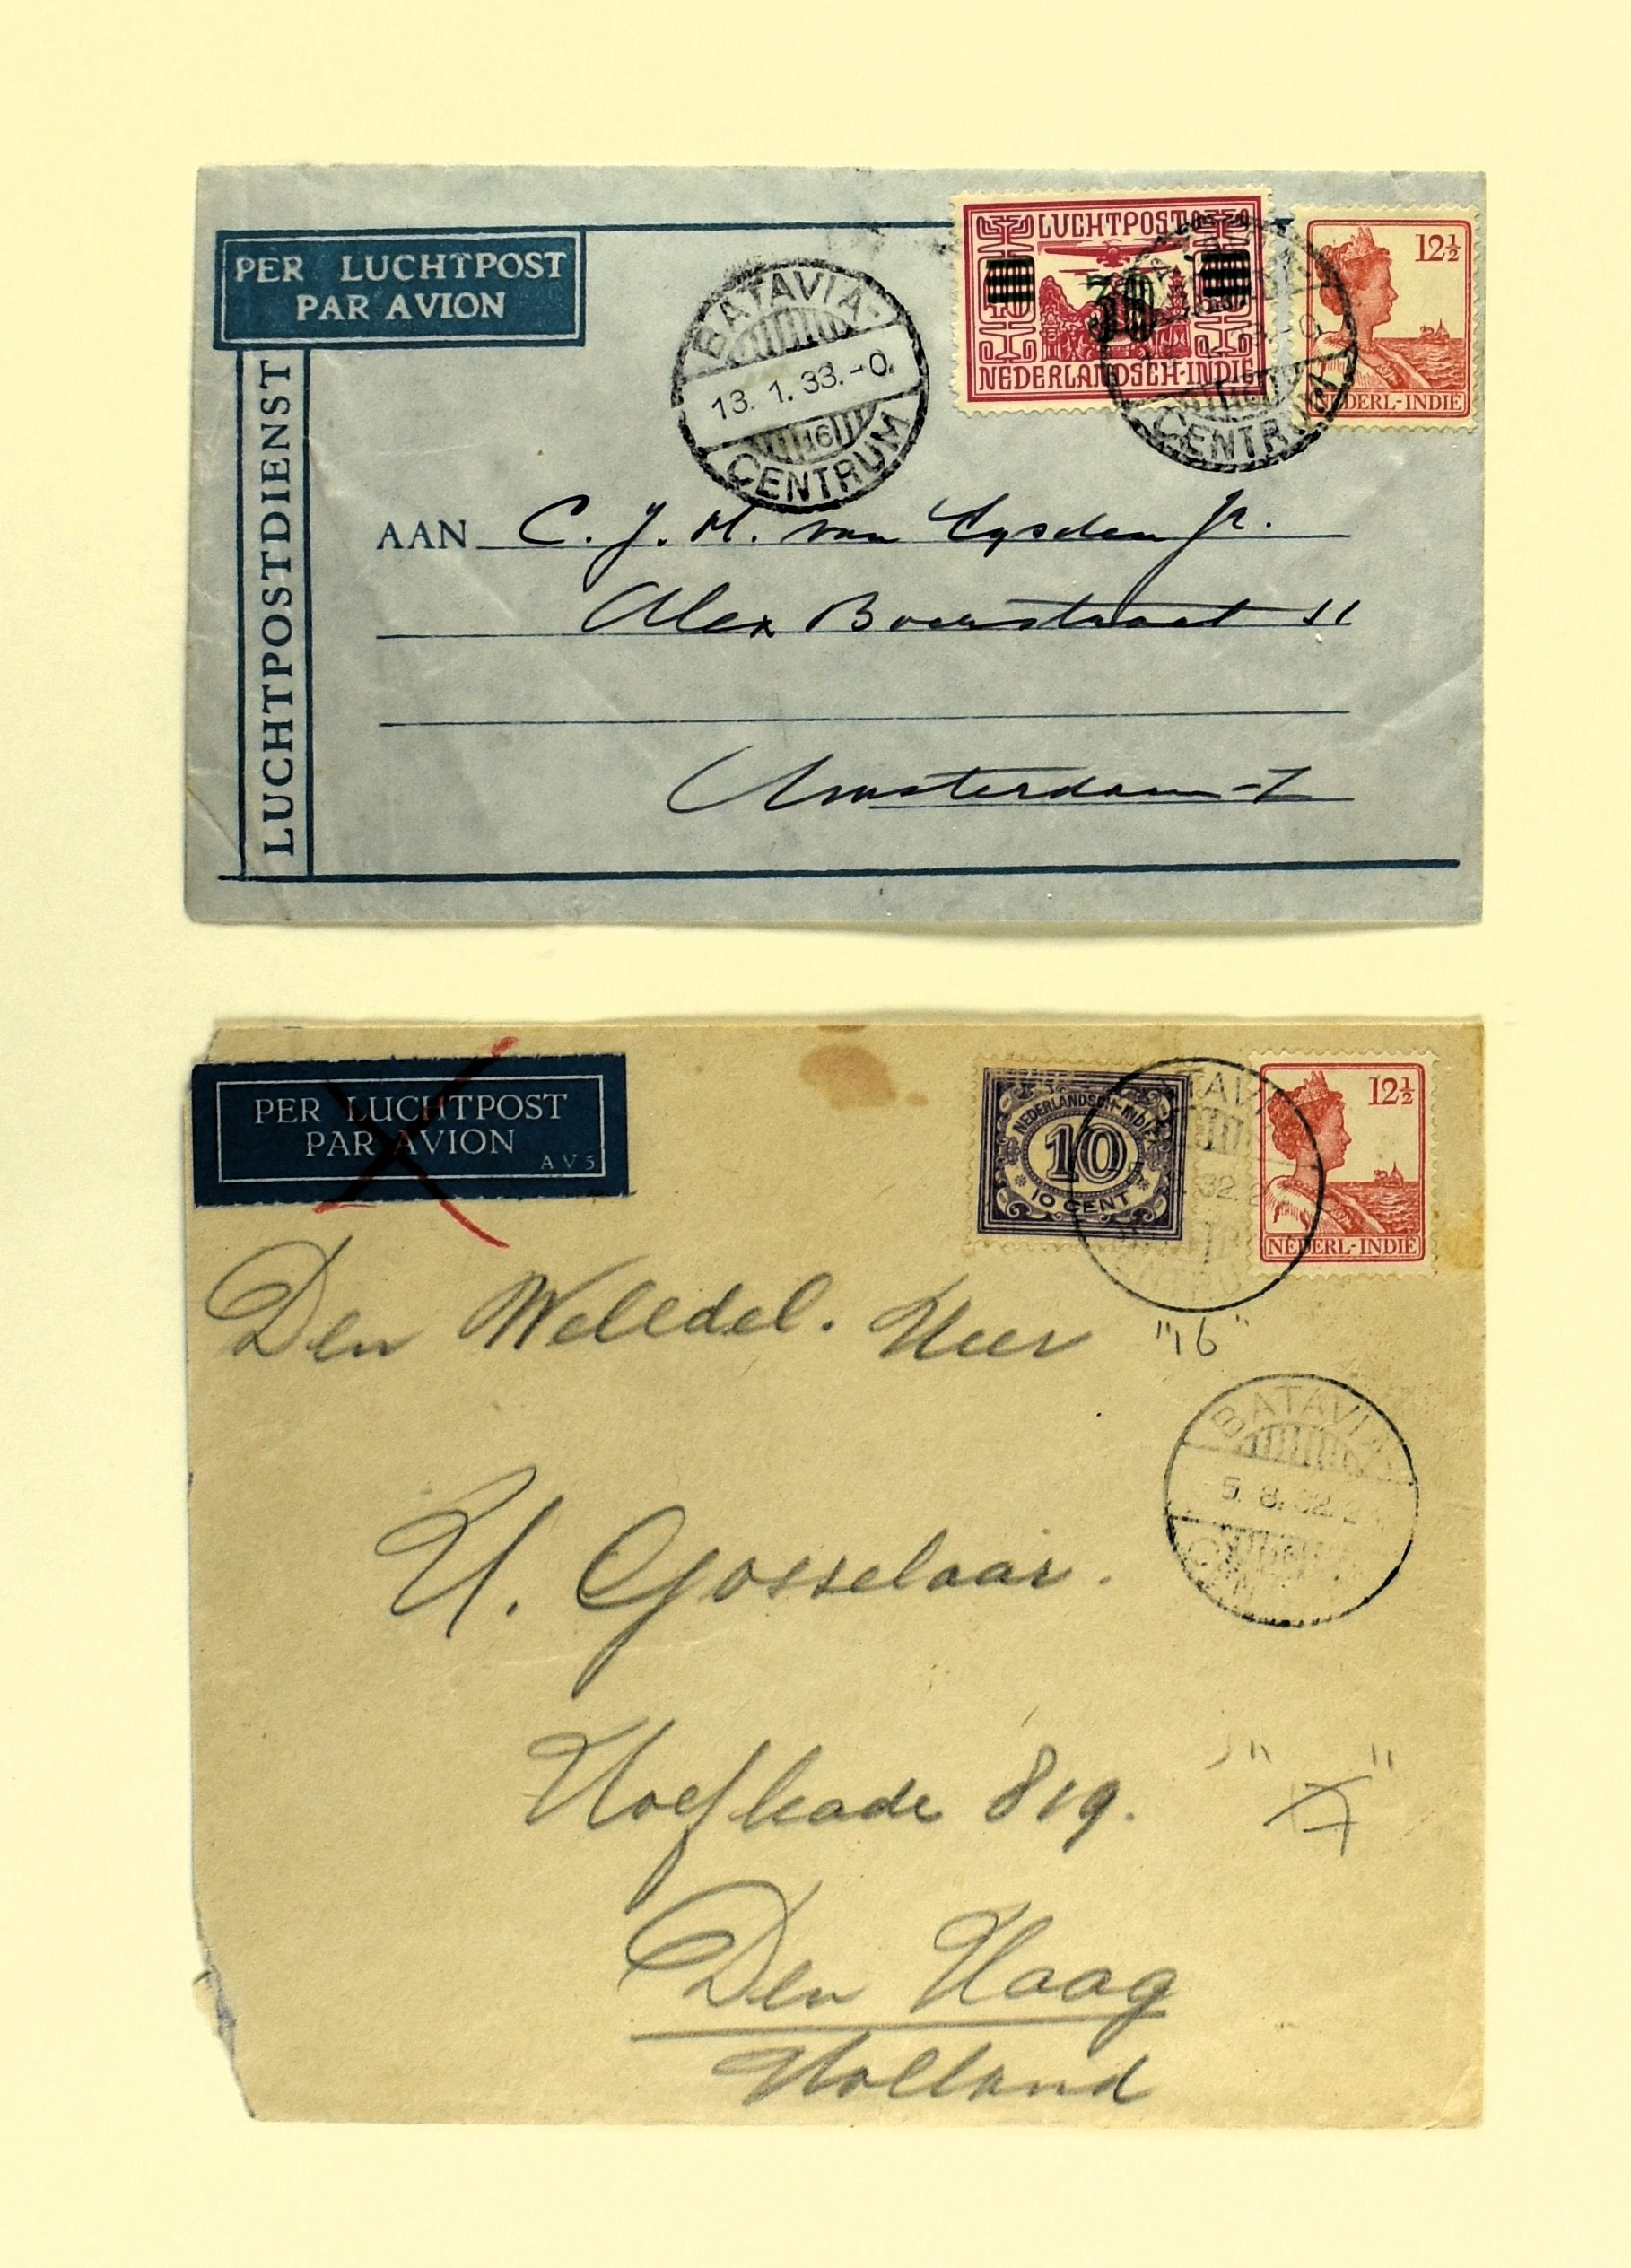 PER LUCHTPOST
PAR AVION
LUCHTPOSTDIENST
BATAVIA-
13. 1. 33.-0.
16
CENTRUM
LUCHTPOST
30
NEDERLANDSCH-INDIE
CENTRUM
12½
NEDERL.-INDIE
AAN C. J. M. van Eysden Jr.
Alex Boersstraat 11
Amsterdam-Z
PER LUCHTPOST
PAR AVION
AV5
NEDERLANDSCH-INDIE
10
10 CENT
TAVI
32.
12½
NEDERL-INDIE
"16"
Den Weledel. Heer
BATAVIA-
5. 8. 32. 2
CEN
H. Gosselaar.
Hoefkade 819.
Den Haag
Holland